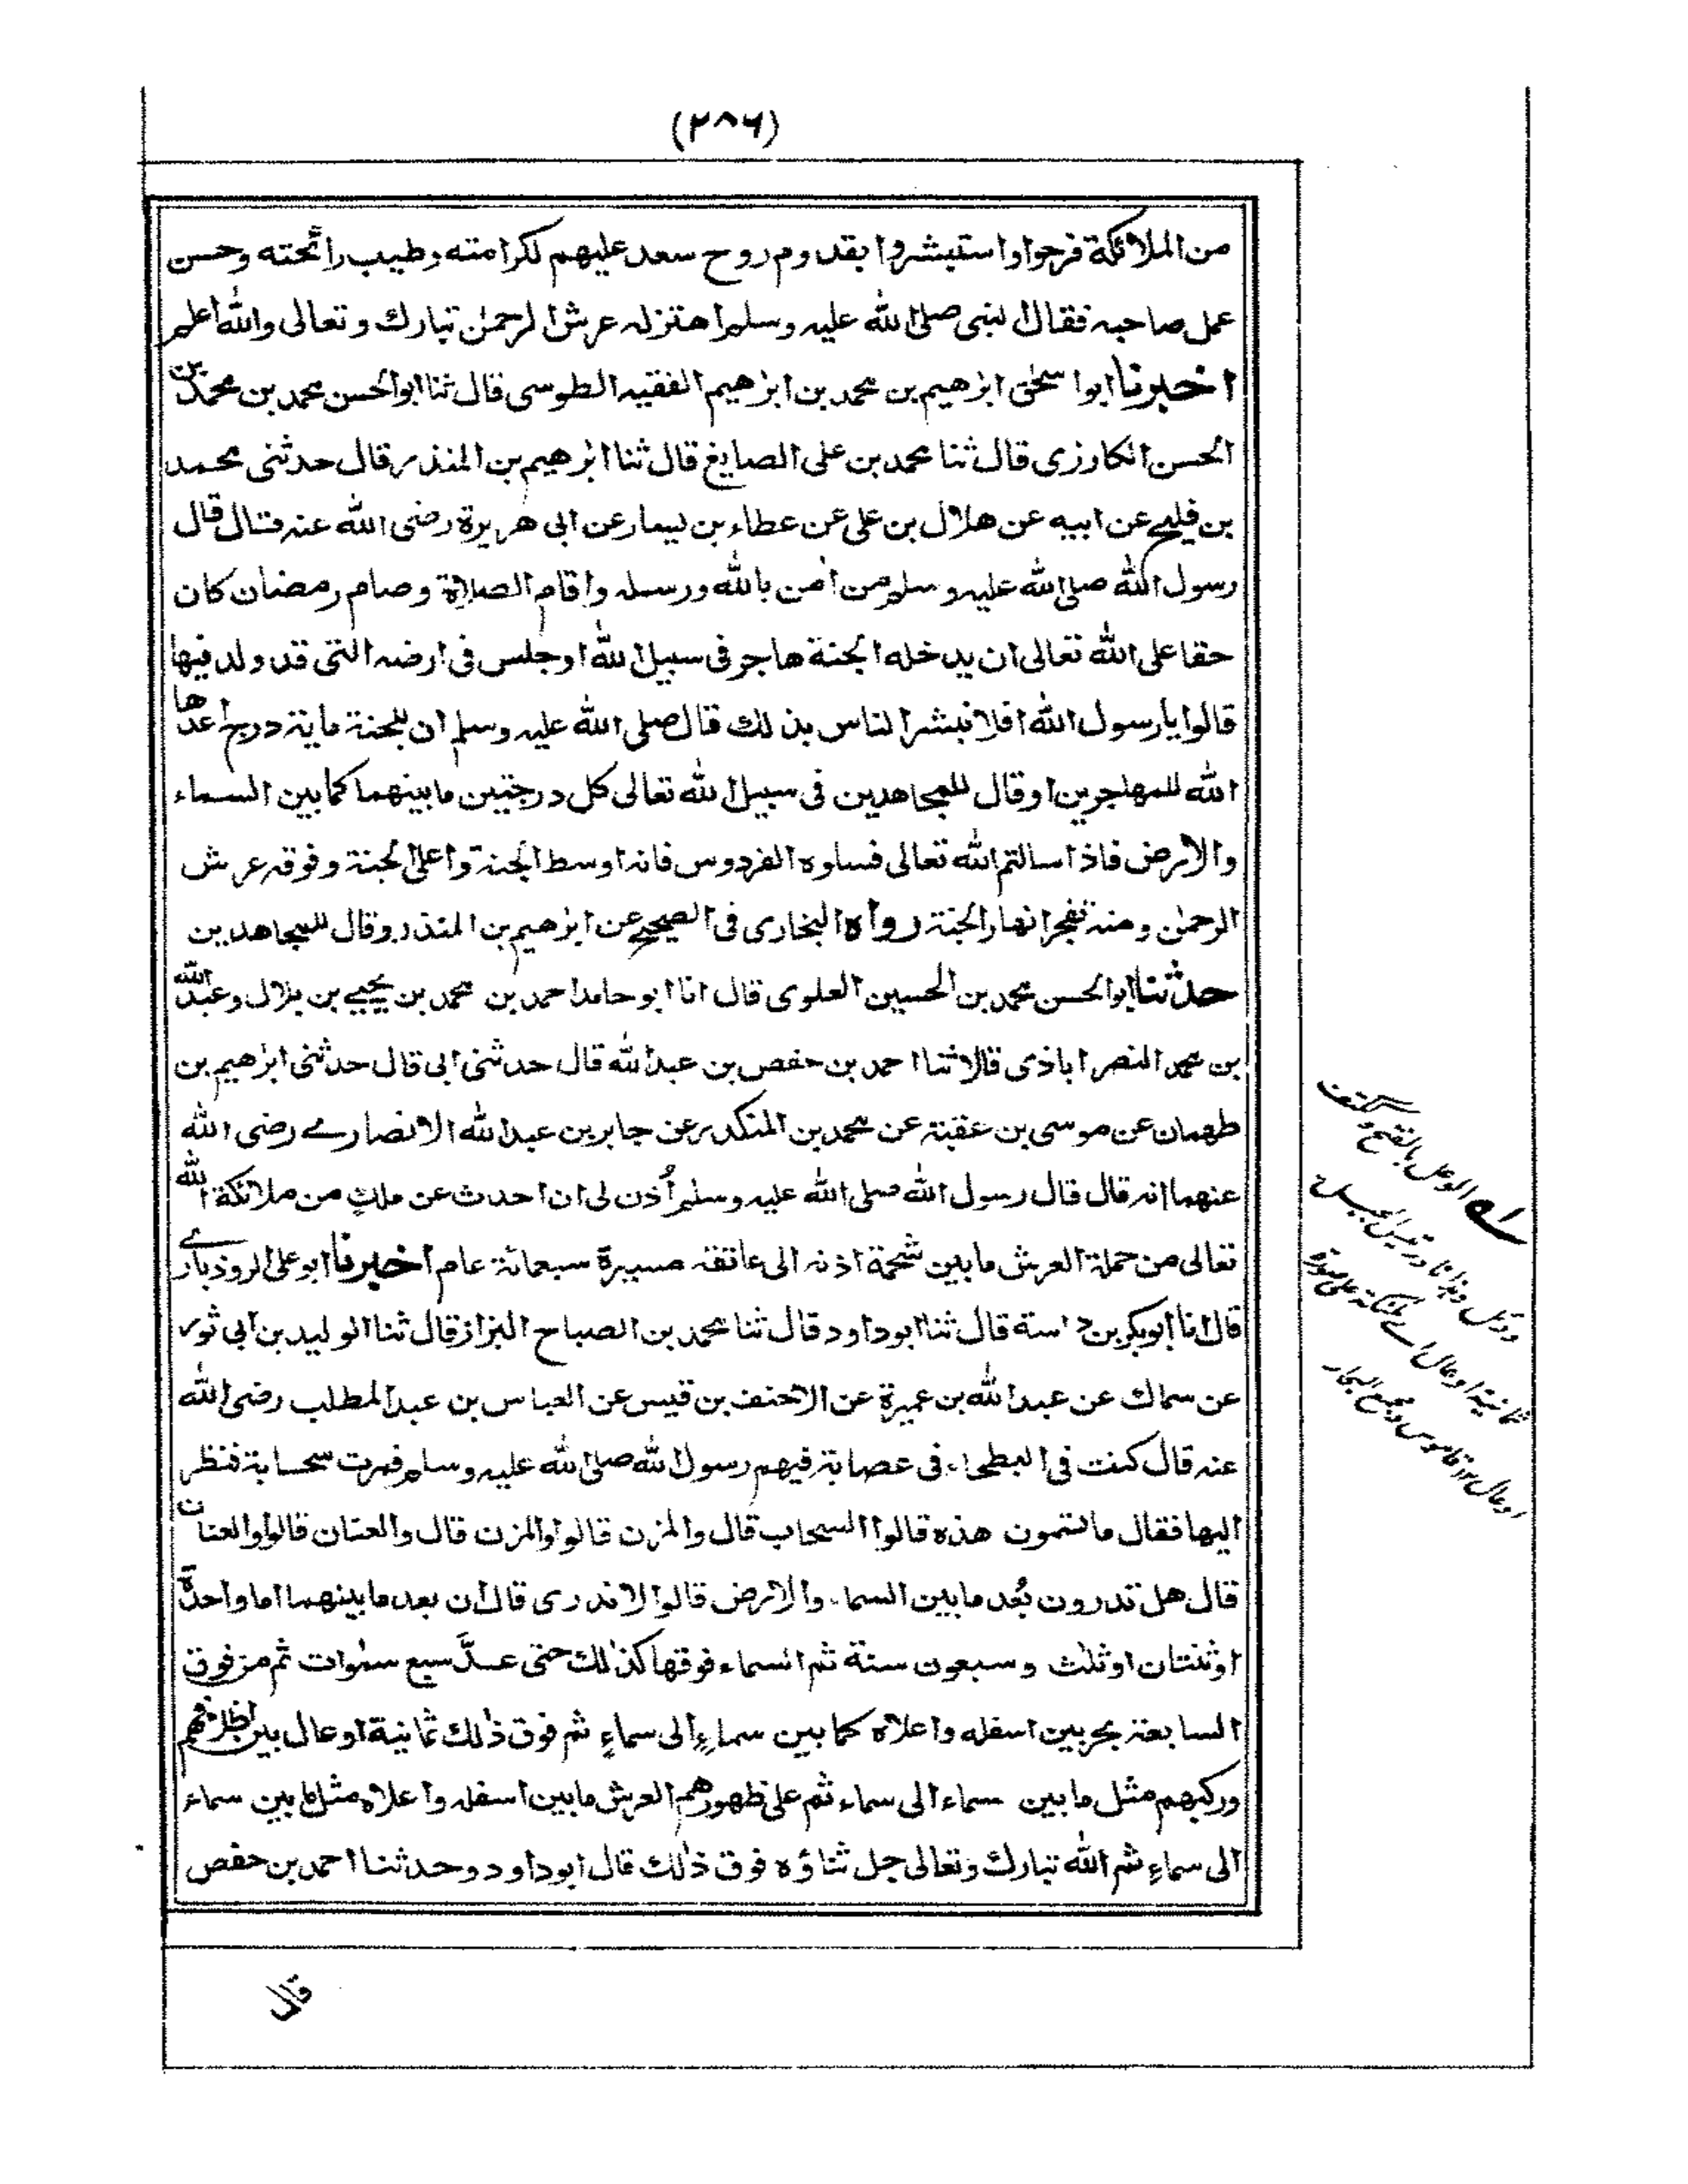 (٢٨٦)
من الملائكة فرحوا واستبشروا بقدوم روح سعد عليهم لكرامته وطيب رائحته وحسن
عمل صاحبه فقال النبى صلى الله عليه وسلم اهتز له عرش الرحمٰن تبارك وتعالى والله اعلم
اخبرنا ابو اسحٰق ابرٰهيم بن محمد بن ابرٰهيم الفقيه الطوسى قال ثنا ابوالحسن محمد بن محمد بن
الحسن الكارزى قال ثنا محمد بن على الصايغ قال ثنا ابرٰهيم بن المنذر قال حدثنى محمد
بن فليح عن ابيه عن هلال بن على عن عطاء بن يسار عن ابى هريرة رضى الله عنه قال قال
رسول الله صلى الله عليه وسلم من اٰمن بالله ورسله واقام الصلاة وصام رمضان كان
حقا على الله تعالى ان يدخله الجنة هاجر فى سبيل الله او جلس فى ارضه التى قد ولد فيها
قالوا يا رسول الله افلا نبشر الناس بذلك قال صلى الله عليه وسلم ان للجنة ماية درجة اعدها
الله للمهاجرين او قال للمجاهدين فى سبيل الله تعالى كل درجتين ما بينهما كما بين السماء
والارض فاذا سالتم الله تعالى فسلوه الفردوس فانه اوسط الجنة واعلى الجنة وفوقه عرش
الرحمٰن ومنه تفجر انهار الجنة رواه البخارى فى الصحيح عن ابرٰهيم بن المنذر وقال للمجاهدين
حدثنا ابوالحسن محمد بن الحسين العلوى قال انا ابو حامد احمد بن محمد بن يحيى بن بلال وعبد الله
بن محمد النصر اباذى قالا ثنا احمد بن حفص بن عبد الله قال حدثنى ابى قال حدثنى ابرٰهيم بن
طهمان عن موسى بن عقبة عن محمد بن المنكدر عن جابر بن عبد الله الانصارے رضى الله
عنهما انه قال قال رسول الله صلى الله عليه وسلم اُذن لى ان احدث عن ملكٍ من ملائكة الله
تعالى من حملة العرش ما بين شحمة اذنه الى عاتقه مسيرة سبعمائة عام اخبرنا ابو على الروذبارے
قال انا ابوبكر بن داسة قال ثنا ابوداود قال ثنا محمد بن الصباح البزاز قال ثنا الوليد بن أبى ثور
عن سماك عن عبد الله بن عميرة عن الاحنف بن قيس عن العباس بن عبد المطلب رضى الله
عنه قال كنت فى البطحاء فى عصابة فيهم رسول الله صلى الله عليه وسلم فمرت سحابة فنظر
اليها فقال ما تسمون هذه قالوا السحاب قال والمزن قالوا والمزن قال والعنان قالوا والعنان
قال هل تدرون بُعد ما بين السماء والارض قالوا لا ندرى قال ان بعد ما بينهما اما واحدة
او ثنتان او ثلٰث وسبعون سنة ثم السماء فوقها كذٰلك حتى عدَّ سبع سمٰوات ثم من فوق
السابعة بحر بين اسفله واعلاه كما بين سماءٍ الى سماءٍ ثم فوق ذٰلك ثمانية اوعال بين اظلافهم
وركبهم مثل ما بين سماء الى سماء ثم على ظهورهم العرش ما بين اسفله واعلاه مثل ما بين سماء
الى سماءٍ ثم الله تبارك وتعالى جل ثناؤه فوق ذٰلك قال ابوداود وحدثنا احمد بن حفص
قال
الوعل بالفتح وككتف
ثمانية اوعال اے ملائكة على صورة
اوعال ۱۲ قاموس ومجمع البحار